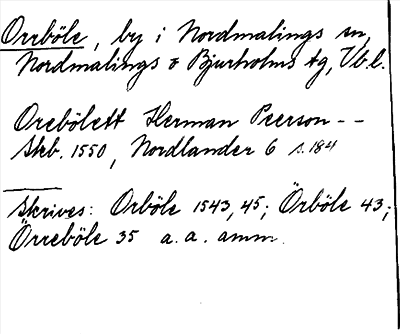 Orrböle, by i Nordmalings sn,
Nordmalings o Bjurholms tg, Vb.l.
Orebölett Herman Peerson --
Skb. 1550, Nordlander 6 s. 184
Skrives: Orböle 1543, 45; Örböle 43;
Örreböle 35 a. a. anm.